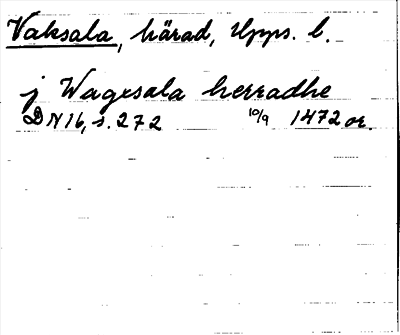 Vaksala, härad, Upps. l.
j Wagxsala herradhe
DN16, s. 272 10/9 1472 or.